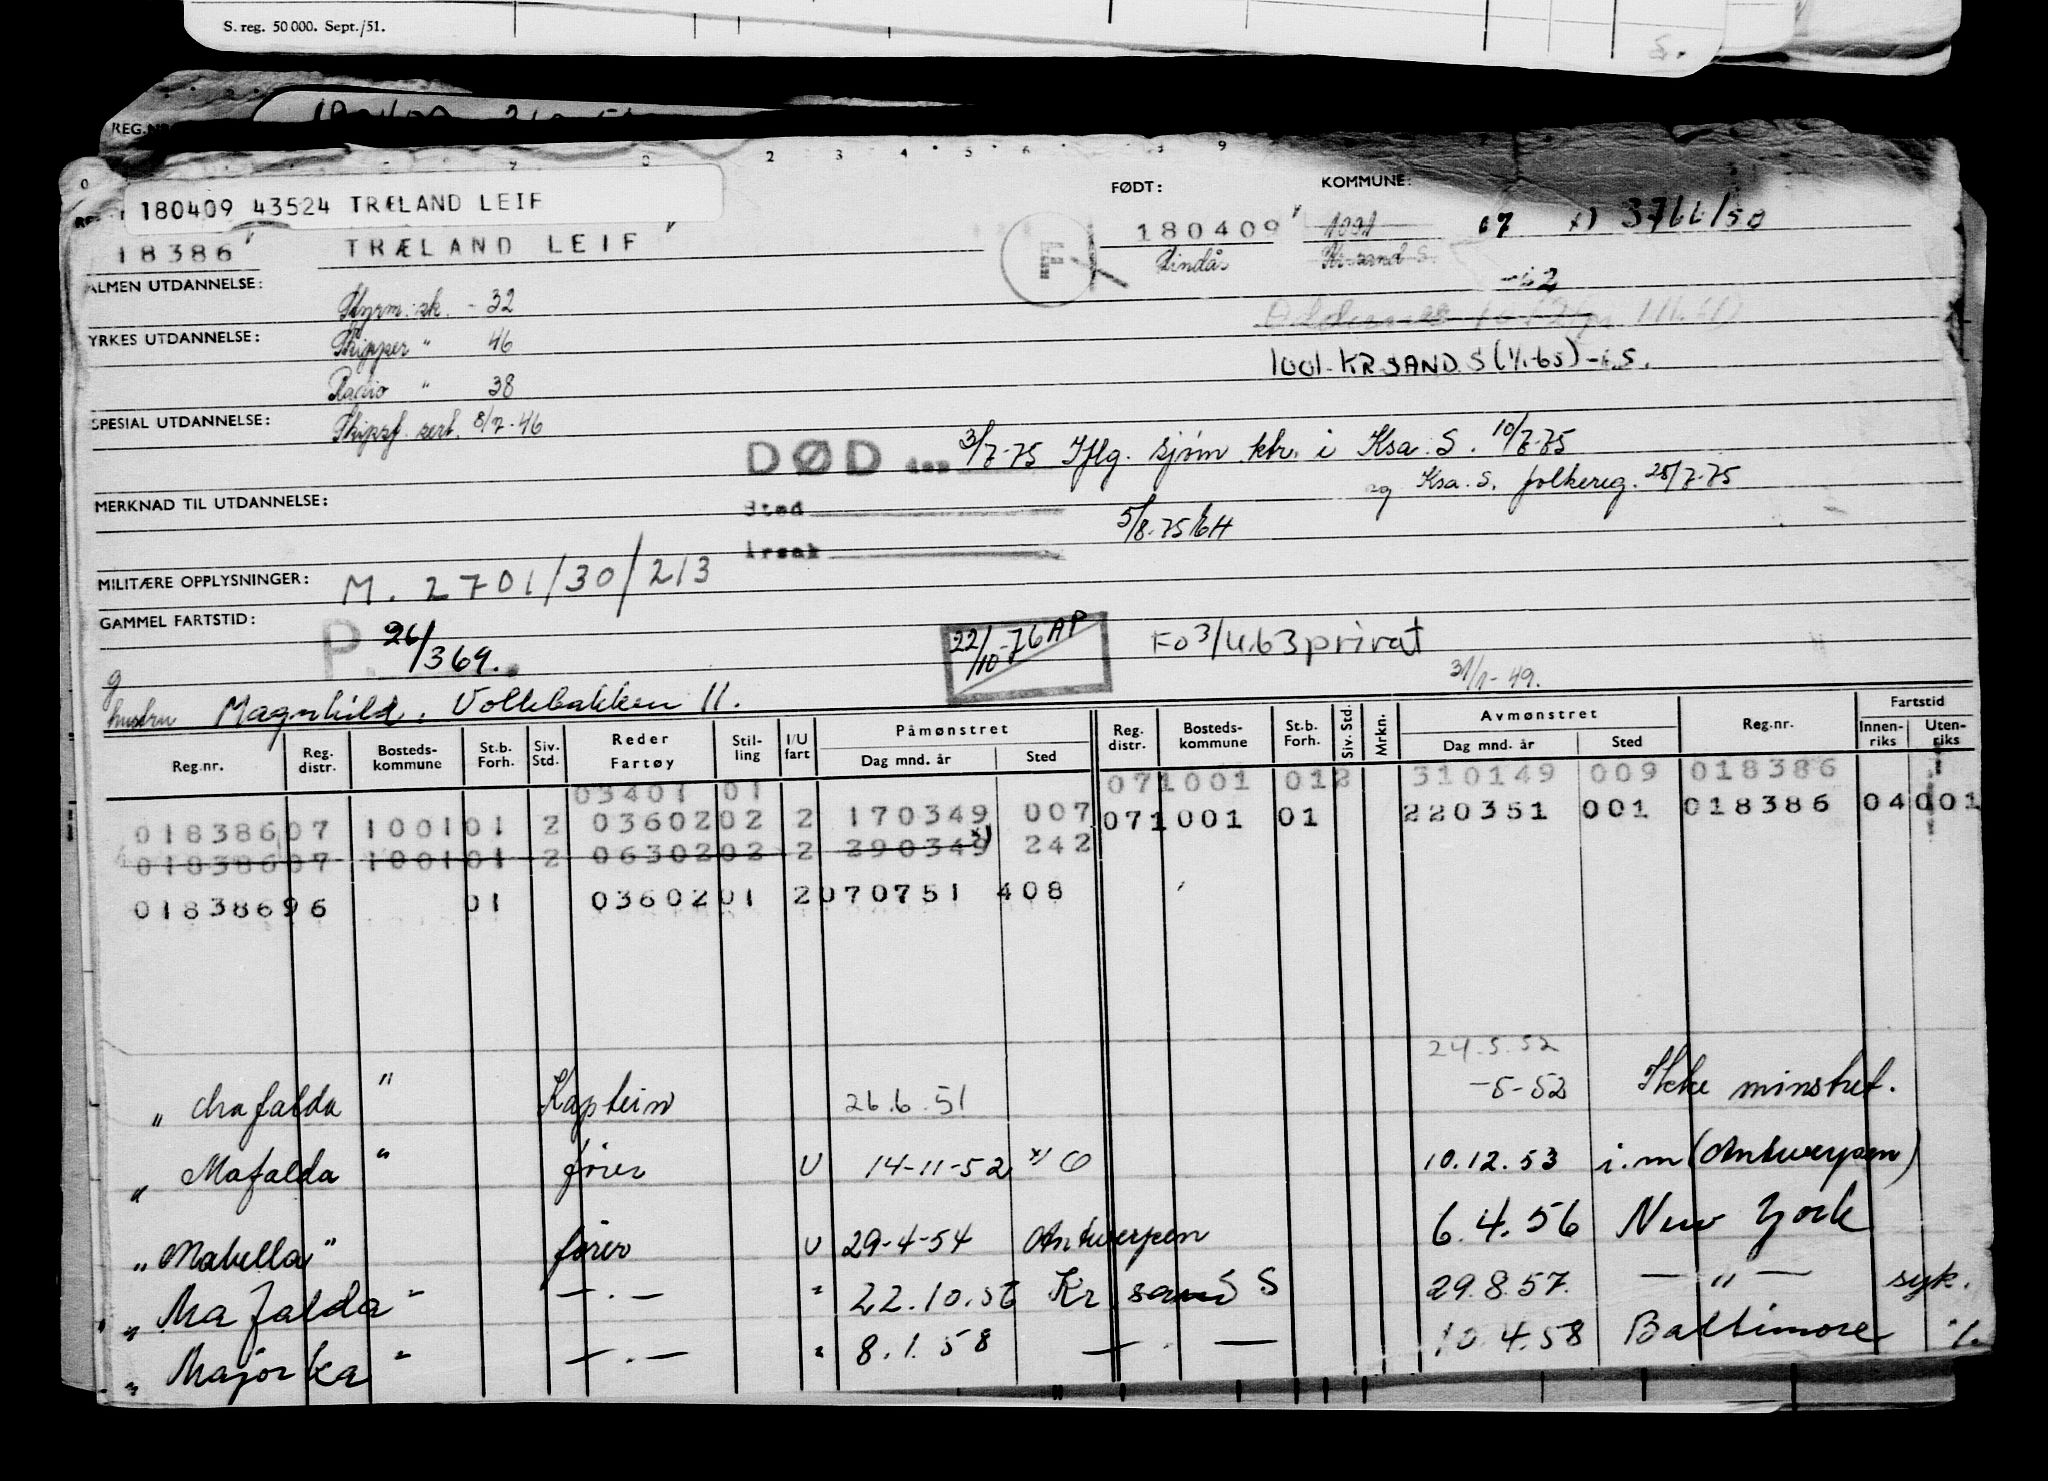 S. reg. 50 000. Sept./51.
S.
REG.N
FØDT: KOMMUNE:
180409 43524 TRÆLAND LEIF
18386 TRÆLAND LEIF F 180409 1001 07 x) 3766/50
Lindås Kr.sand S.
ALMEN UTDANNELSE: Styrm. sk. - 32 -i2
YRKES UTDANNELSE: Skipper " 46
Radio " 38 1001 KR SAND S (1/1-65) - i.S.
SPESIAL UTDANNELSE: Skipsf. sert. 8/7-46
DØD den 3/7-75 Iflg. sjøm ktr. i Ksa. S. 10/7-75
og Ksa. S. folkereg. 25/7-75
MERKNAD TIL UTDANNELSE: Sted 5/8-75
Årsak
MILITÆRE OPPLYSNINGER: M. 2701/30/213
GAMMEL FARTSTID: P. 26/369. 22/10-76 AP Fo 3/4.63 privat
g 31/1-49.
hustru Magnhild, Vollebakken 11.
Reg.nr. Reg. distr. Bosteds-kommune St.b. Forh. Siv. Std. Reder Fartøy Stil-ling I/U fart Påmønstret Dag mnd. år Sted Reg. distr. Bosteds-kommune St.b. Forh. Siv. Std. Mrkn. Avmønstret Dag mnd. år Sted Reg.nr. Fartstid Innen-riks Uten-riks
03401 01 07 1001 01 2 310149 009 018386
018386 07 1001 01 2 03602 02 2 170349 007 07 1001 01 220351 001 018386 04 001
018386 07 1001 01 2 06302 02 2 290349 x) 242
018386 96 01 03602 01 2 070751 408
24.5.52
" Mafalda " Kaptein 26.6.51 -5-52 Ikke mønstret.
" Mafalda " fører U 14-11-52 x) 10.12.53 i.m (Antwerpen)
" Mabella " fører U 29-4-54 Antwerpen 6.4.56 New York
" Mafalda " — . — " 22.10.56 Kr. sand S 29.8.57. — " — syk.
" Majorka " — . — " 8.1.58 — . — 10.4.58 Baltimore